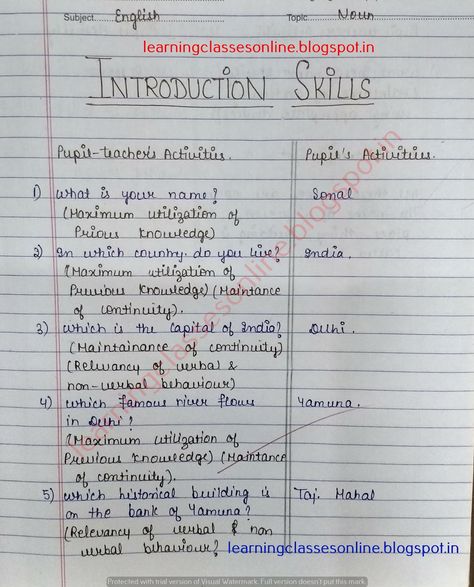 Subject English Topic Noun
learningclassesonline.blogspot.in
INTRODUCTION SKILLS
Pupil-teacher's Activities. Pupil's Activities.
1) What is your name? Sonal
(Maximum utilization of
Prious Knowledge)
2) In which country do you live? India.
(Maximum utilization of
Previous Knowledge) (Maintance
of continuity).
3) Which is the Capital of India? Delhi.
(Maintainance of continuity)
(Relevancy of verbal &
non-verbal behaviour)
4) Which famous river flows Yamuna.
in Delhi?
(Maximum utilization of
Previous Knowledge) (Maintance
of continuity).
5) Which historical building is Taj. Mahal
on the bank of Yamuna?
(Relevancy of verbal & non
verbal behaviour? learningclassesonline.blogspot.in
learningclassesonline.blogspot.in
Protected with trial version of Visual Watermark. Full version doesn't put this mark.